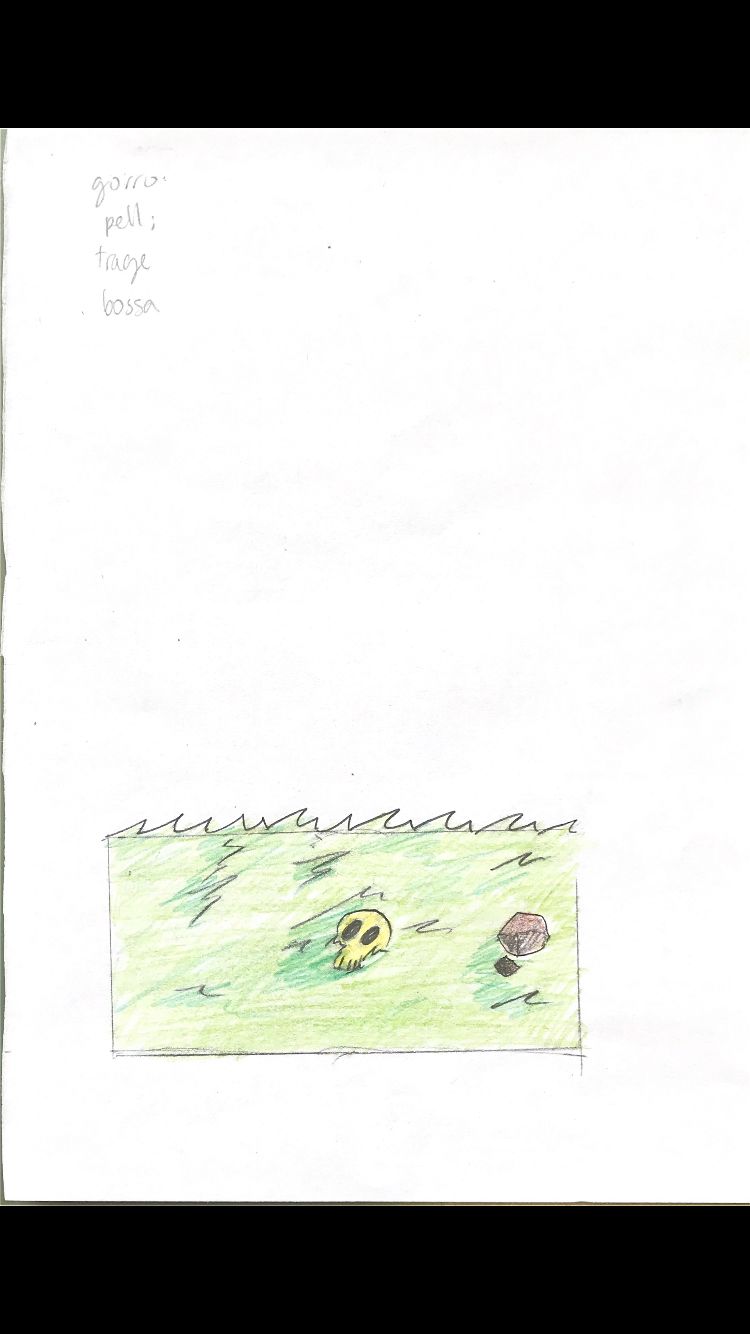 gorro:
pell;
trage
bossa